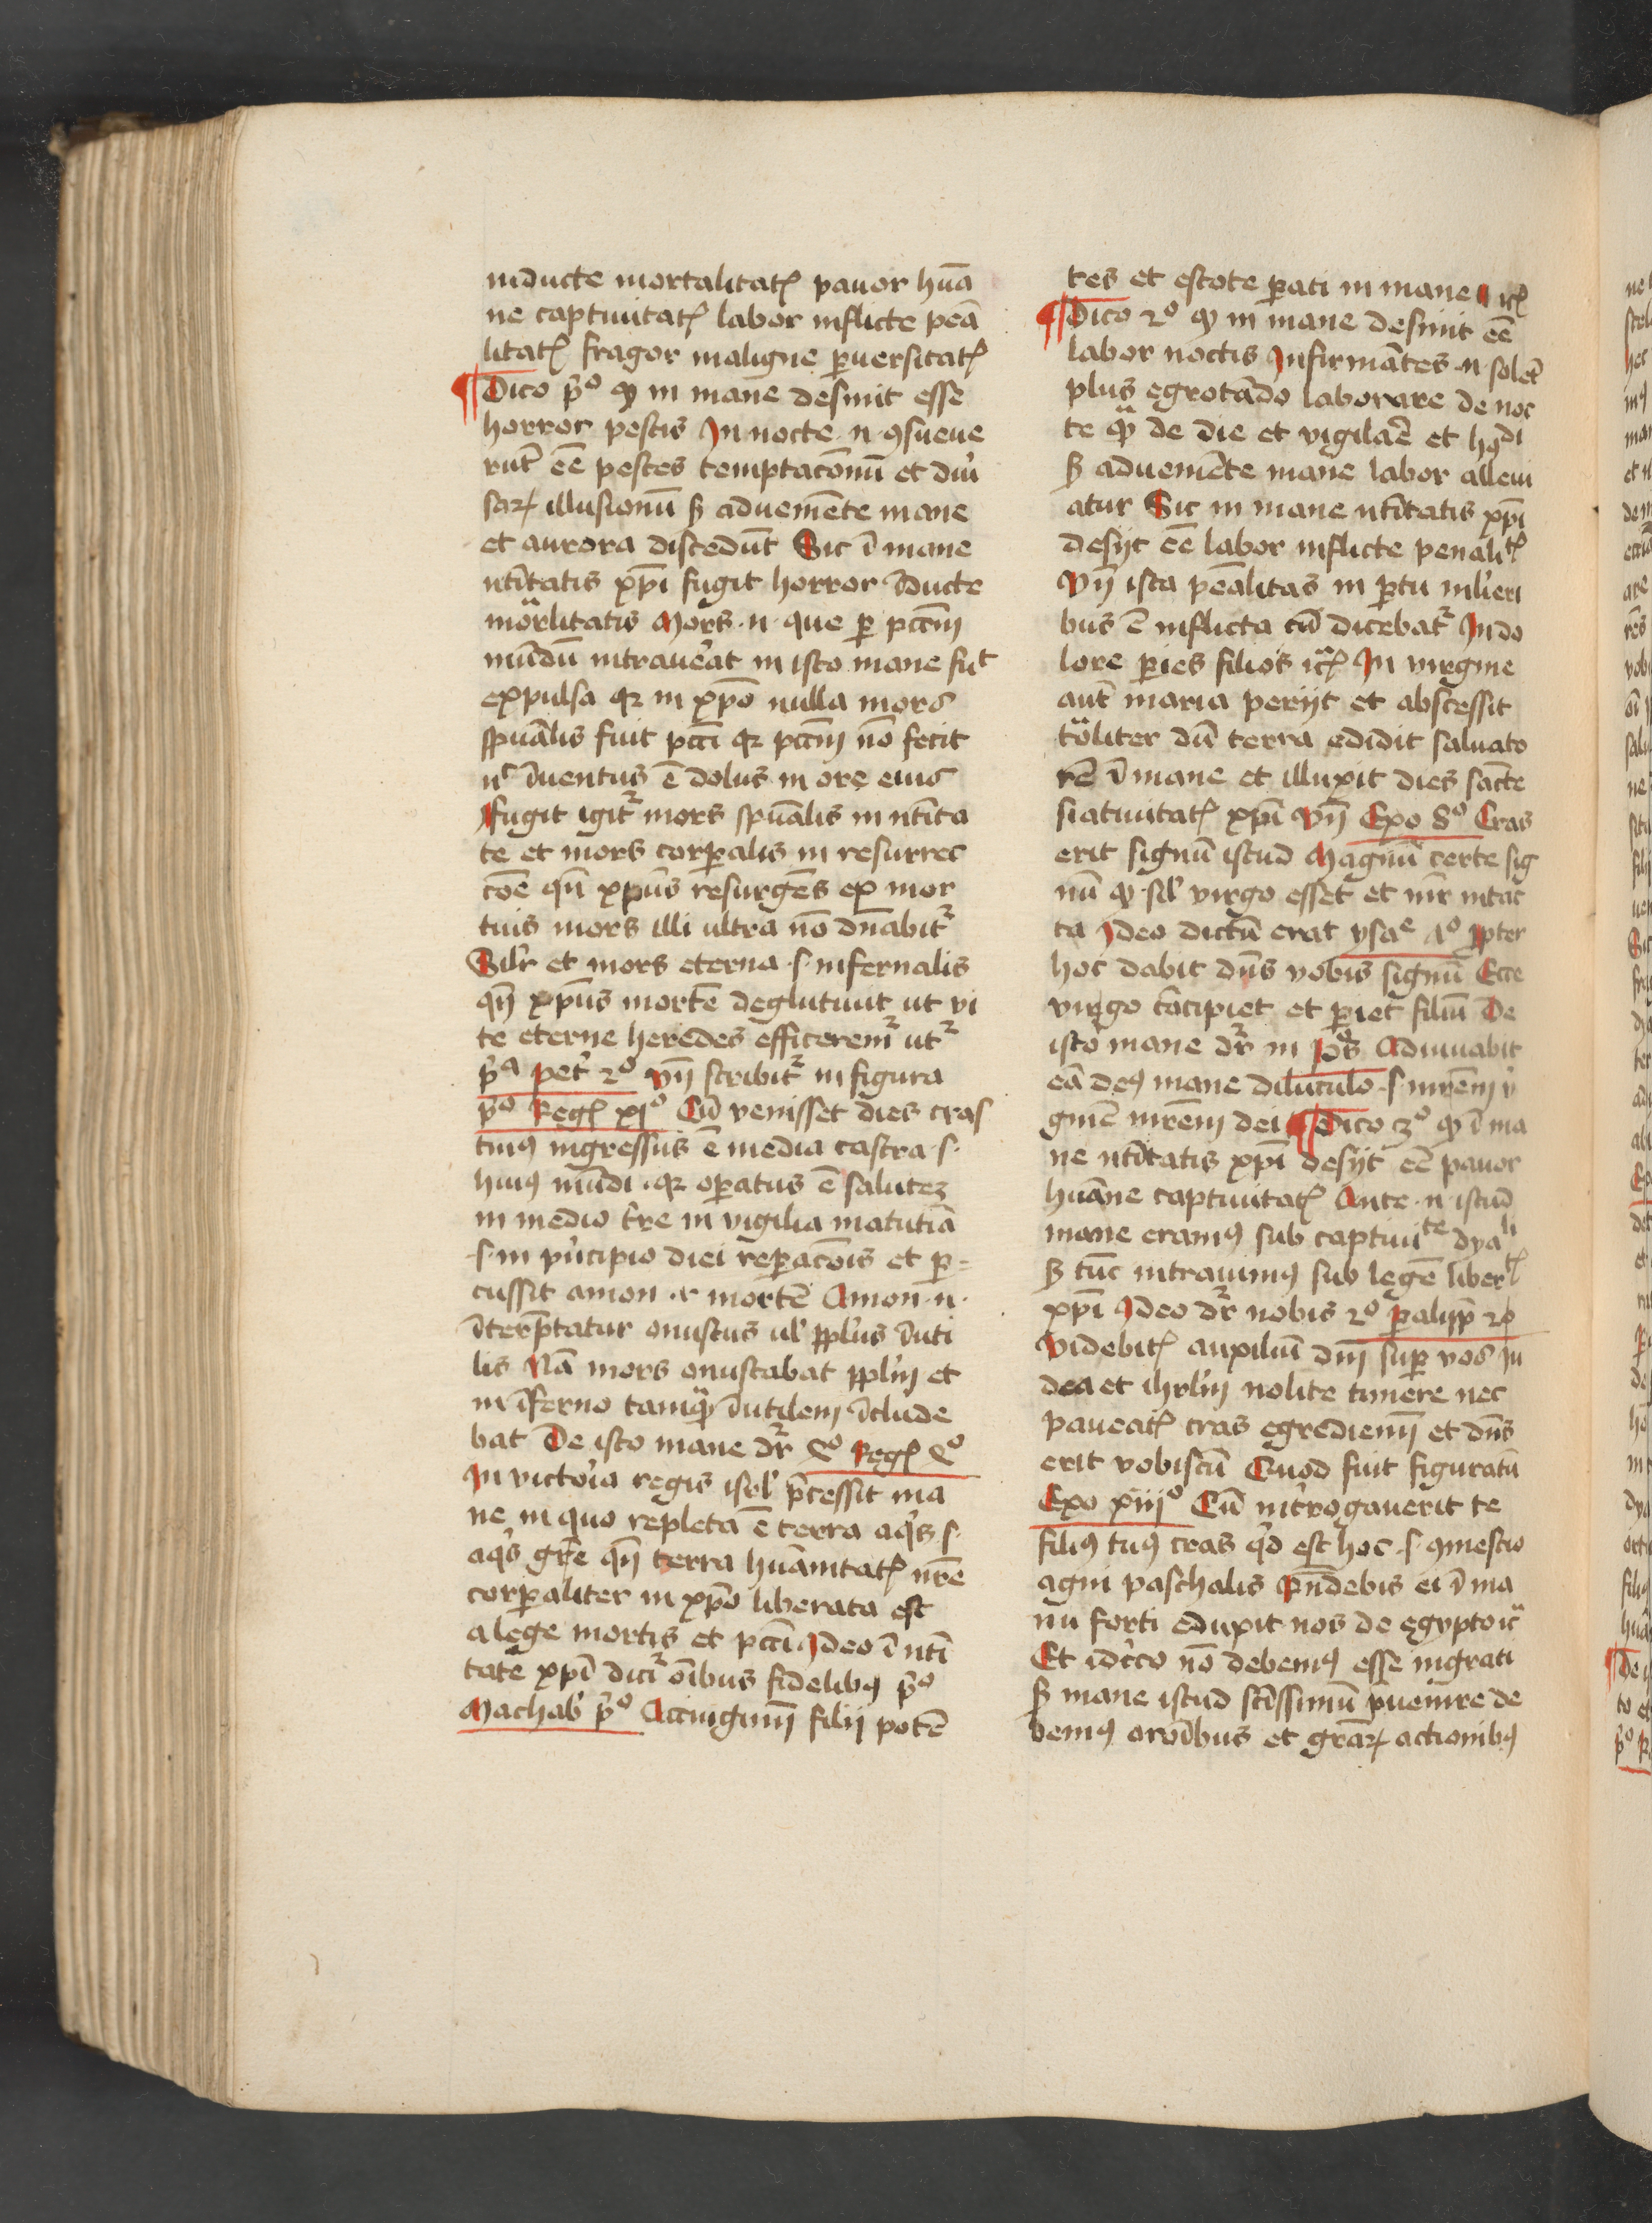 inducte mortalitatꝭ pauor huā
ne captiuitatꝭ labor inflicte peā
litatꝭ fragor maligne ꝑuersitatꝭ
¶ Dico p̄º ꝙ in mane desinit esse
horror pestis In nocte .n. ꝯsueue
rūt eē pestes temptacōnū et diu̓
saꝝ illusionū sꝫ adueniēte mane
et aurora discedūt Sic ī mane
ntītatis xp̄i fugit horror īducte
mortalitatis Mors .n. que ꝑ pctm̄
mūdū intrauerat in isto mane fuͭ
expulsa qꝛ in xp̄o nulla mors
sp̄ualis fuit pcti qꝛ pctm̄ nō fecit
nͨ īuentus ē dolus in ore eius
Fugit igitᷣ mors sp̄ualis in ntīta
te et mors corꝑalis in resurrec
cōe qn̄ xp̄us resurgēs ex mor
tuis mors illi ultra nō dn̄abitᷣ
Silr̄ et mors eterna .s. infernalis
qn̄ xp̄us mortē deglutiuit ut vi
te eterne heredes efficeremᷣ utᷣ
p̄ᵃ pet̓ 2º Vn̄ scribitᷣ in figura
p̄º Regꝭ xjº Cū venisset dies cras
tinꝰ ingressus ē media castra .s.
huiꝰ mūdi qꝛ oꝑatus ē salutez
in medio tr̄e in vigilia matutīa
.s. in pͥncipio diei reꝑacōis et ꝑ=
cussit amon .i. mortē Amon .n.
īterp̄tatur onustus ul̓ pplus īuti
lis Nā mors onustabat pplm̄ et
in īferno tamqᷓ īutilem īclude
bat De isto mane dr̄ 4º Regꝭ 4º
In victoria regis isrl̓ p̄cessit ma
ne in quo repleta ē terra aqͥs .s.
aqͥs gr̄e qn̄ terra huānitatꝭ nr̄e
corꝑaliter in xp̄o liberata est
a lege mortis et pcti Ideo ī ntī
tate xp̄i dicitᷣ oībus fidelibꝰ p̄º
Machab̓ p̄º Accingimī filij potē
tes et estote ꝑati in mane ⁊cꝭ
¶ Dico 2º ꝙ in mane desinit eē
labor noctis Infirmātes .n. solēt
plus egrotādo laborare de noc
te qᷓ de die et vigilāē et hꝯͩi
sꝫ adueniēte mane labor alleui
atur Sic in mane ntītatis xp̄i
desijt eē labor inflicte penalitꝭ
Vn̄ ista pēalitas in ꝑtu mlieri
bus ē inflicta cū dicebatᷣ In do
lore ꝑies filios ⁊cꝭ In virgine
aut̄ maria perijt et abscessit
totaliter dū terra edidit saluato
rē ī mane et illuxit dies sācte
natiuitatꝭ xp̄i Vn̄ Exo 8º Cras
erit signū istud Magnū certe sig
nū ꝙ sil̓ virgo esset et mr̄ intac
ta Ideo dictū erat ysaᵉ 7º ꝓpter
hoc dabit dn̄s vobis signū Ecce
virgo cōcipiet et ꝑiet filiū De
isto mane dr̄ in pͦs Adiuuabit
eā deꝰ mane diluculo .s. mr̄em v̓
ginē mr̄em dei ¶ Dico 3º ꝙ ī ma
ne ntītatis xp̄i desijt eē pauor
huāne captiuitatꝭ Ante .n. istud
mane eramꝰ sub captiuiᵗᵉ dyaˡⁱ
sꝫ tūc intrauimꝰ sub legē liberᵗꝭ
xp̄i Ideo dr̄ nobis 2º ꝑalipp̄ 20
Videbitꝭ auxiliū dn̄i suꝑ vos iu
dea et ihrlm̄ nolite timere nec
paueatꝭ cras egrediemī et dn̄s
erit vobiscū Quod fuit figuratū
Exo xiijº Cū int̓rogauerit te
filiꝰ tuꝰ cras qͥd est hoc .s. ꝯmestio
agni paschalis Rn̄debis ei ī ma
nu forti eduxit nos de egypto ⁊c̄
Et idc̓co nō debemꝰ esse ingrati
sꝫ mane istud sctīssimū p̄uenire de
bemꝰ oroībus et gr̄aꝝ actionibꝰ